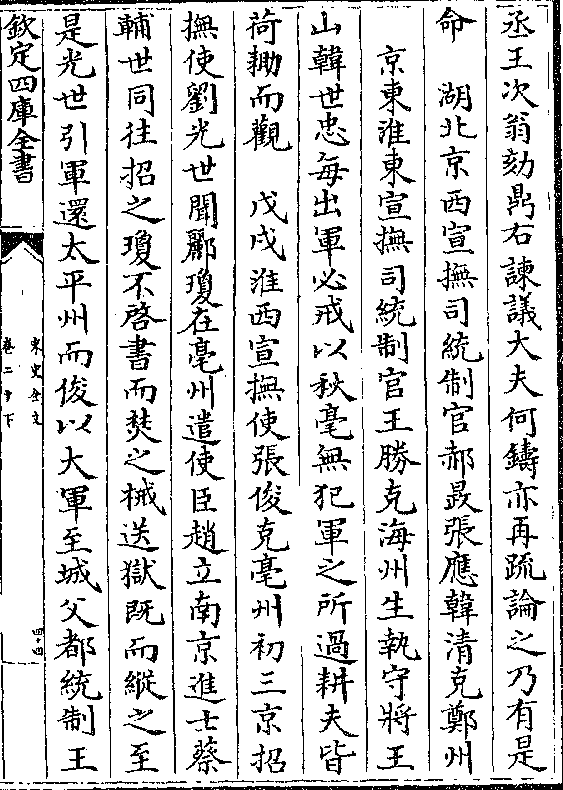 丞王次翁劾鼎右諫議大夫何鑄亦再疏論之乃有是
命　湖北京西宣撫司統制官郝晸張應韓清克鄭州
京東淮東宣撫司統制官王勝克海州生執守將王
山韓世忠每出軍必戒以秋毫無犯軍之所過耕夫皆
荷耡而觀　戊戌淮西宣撫使張俊克亳州初三京招
撫使劉光世聞酈瓊在亳州遣使臣趙立南京進士蔡
輔世同往招之瓊不啓書而焚之械送獄既而縱之至
是光世引軍還太平州而俊以大軍至城父都統制王
欽定四庫全書
宋史全文
卷二十下
四十四